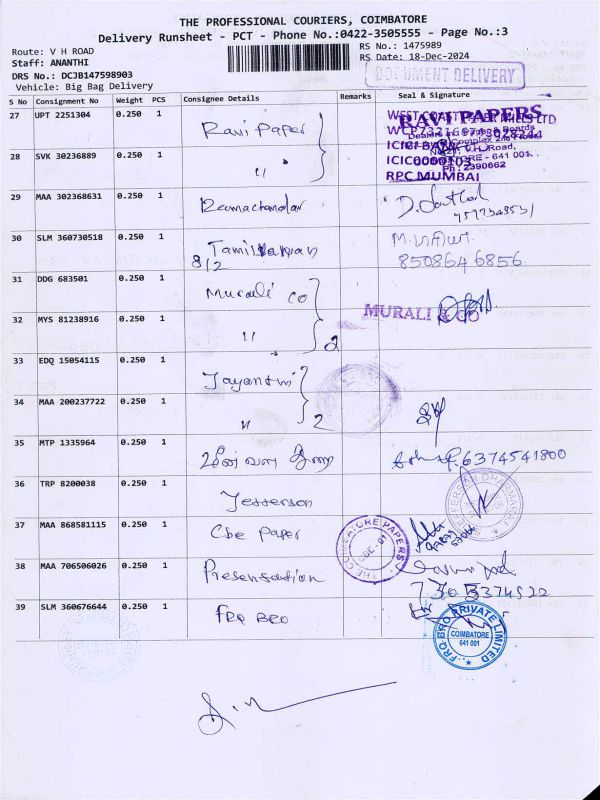 THE PROFESSIONAL COURIERS, COIMBATORE
Delivery Runsheet - PCT - Phone No.:0422-3505555 - Page No.:3
Route: V H ROAD
Staff: ANANTHI
DRS No.: DCJB147598903
Vehicle: Big Bag Delivery
RS No.: 1475989
RS Date: 18-Dec-2024
DOCUMENT DELIVERY
S No Consignment No Weight PCS Consignee Details Remarks Seal & Signature
27 UPT 2251304 0.250 1 Ravi Paper
RAVI PAPERS
28 SVK 30236889 0.250 1 "
ICIC0000103
RPC MUMBAI
Ph : 2390662
29 MAA 302368631 0.250 1 Ramachandar
30 SLM 360730518 0.250 1 Tamil
8/2
8508646856
31 DDG 683501 0.250 1 Murali co
MURALI & CO
32 MYS 81238916 0.250 1 " 2
33 EDQ 15054115 0.250 1 Jayanthi
34 MAA 200237722 0.250 1 " 2
35 MTP 1335964 0.250 1 6374541800
36 TRP 8200038 0.250 1 Jesserson
37 MAA 868581115 0.250 1 Cbe Paper
THE COIMBATORE PAPERS
CBE-01
38 MAA 706506026 0.250 1 Presentation
39 SLM 360676644 0.250 1 FRQ BRO
FRQ BRO PRIVATE LIMITED
COIMBATORE
641 001